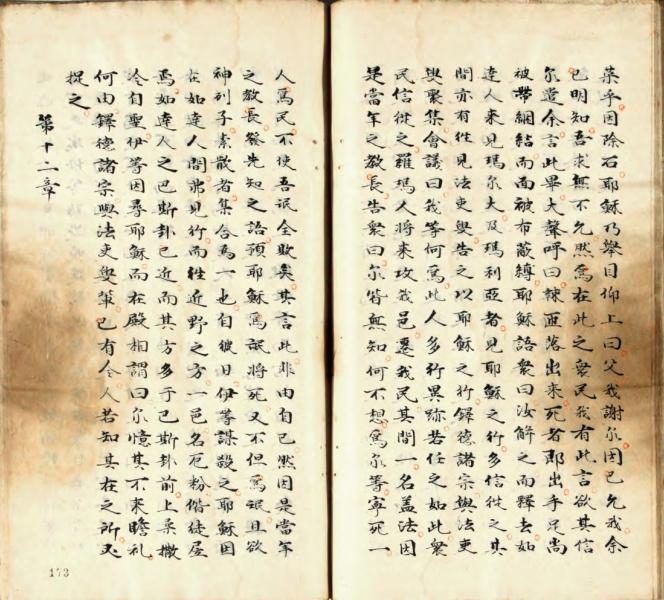 榮乎因除石耶穌乃舉目仰上曰父我謝尔因已允我余
已明知吾求無不允然為在此之众民我有此言欲其信
尔遣余言此畢大聲呼曰辣匝落出來死者即出手足尚
被帶綑結而面被布蔽縛耶穌語衆曰汝解之而釋去如
達人來見瑪尔大及瑪利亞者見耶穌之行多信徃之其
間亦有徃見法吏與告之以耶穌之行鐸德諸宗與法吏
叟聚集會議曰我等何為此人多行異跡若任之如此衆
民信徃之羅瑪人將來攻我邑遷我民其間一名盖法因
是當年之教長告衆曰尔皆無知何不想為尔等寧死一
人為民不使吾氓全敗矣其言此非由自已然因是當年
之教長發先知之語預耶穌為氓將死又不但為氓且欲
神列子素散者集合為一也自彼日伊等謀殺之耶穌因
在如達人間弗見行而徃近野之方一邑名厄粉偕徒居
焉如達人之巴斯卦已近而其方多于巴斯卦前上柔撒
冷自聖伊等因尋耶穌而在殿相謂曰尔憶其不來瞻礼
何由鐸德諸宗與法吏叟輩已有令人若知其在之所
捉之
第十二章
173